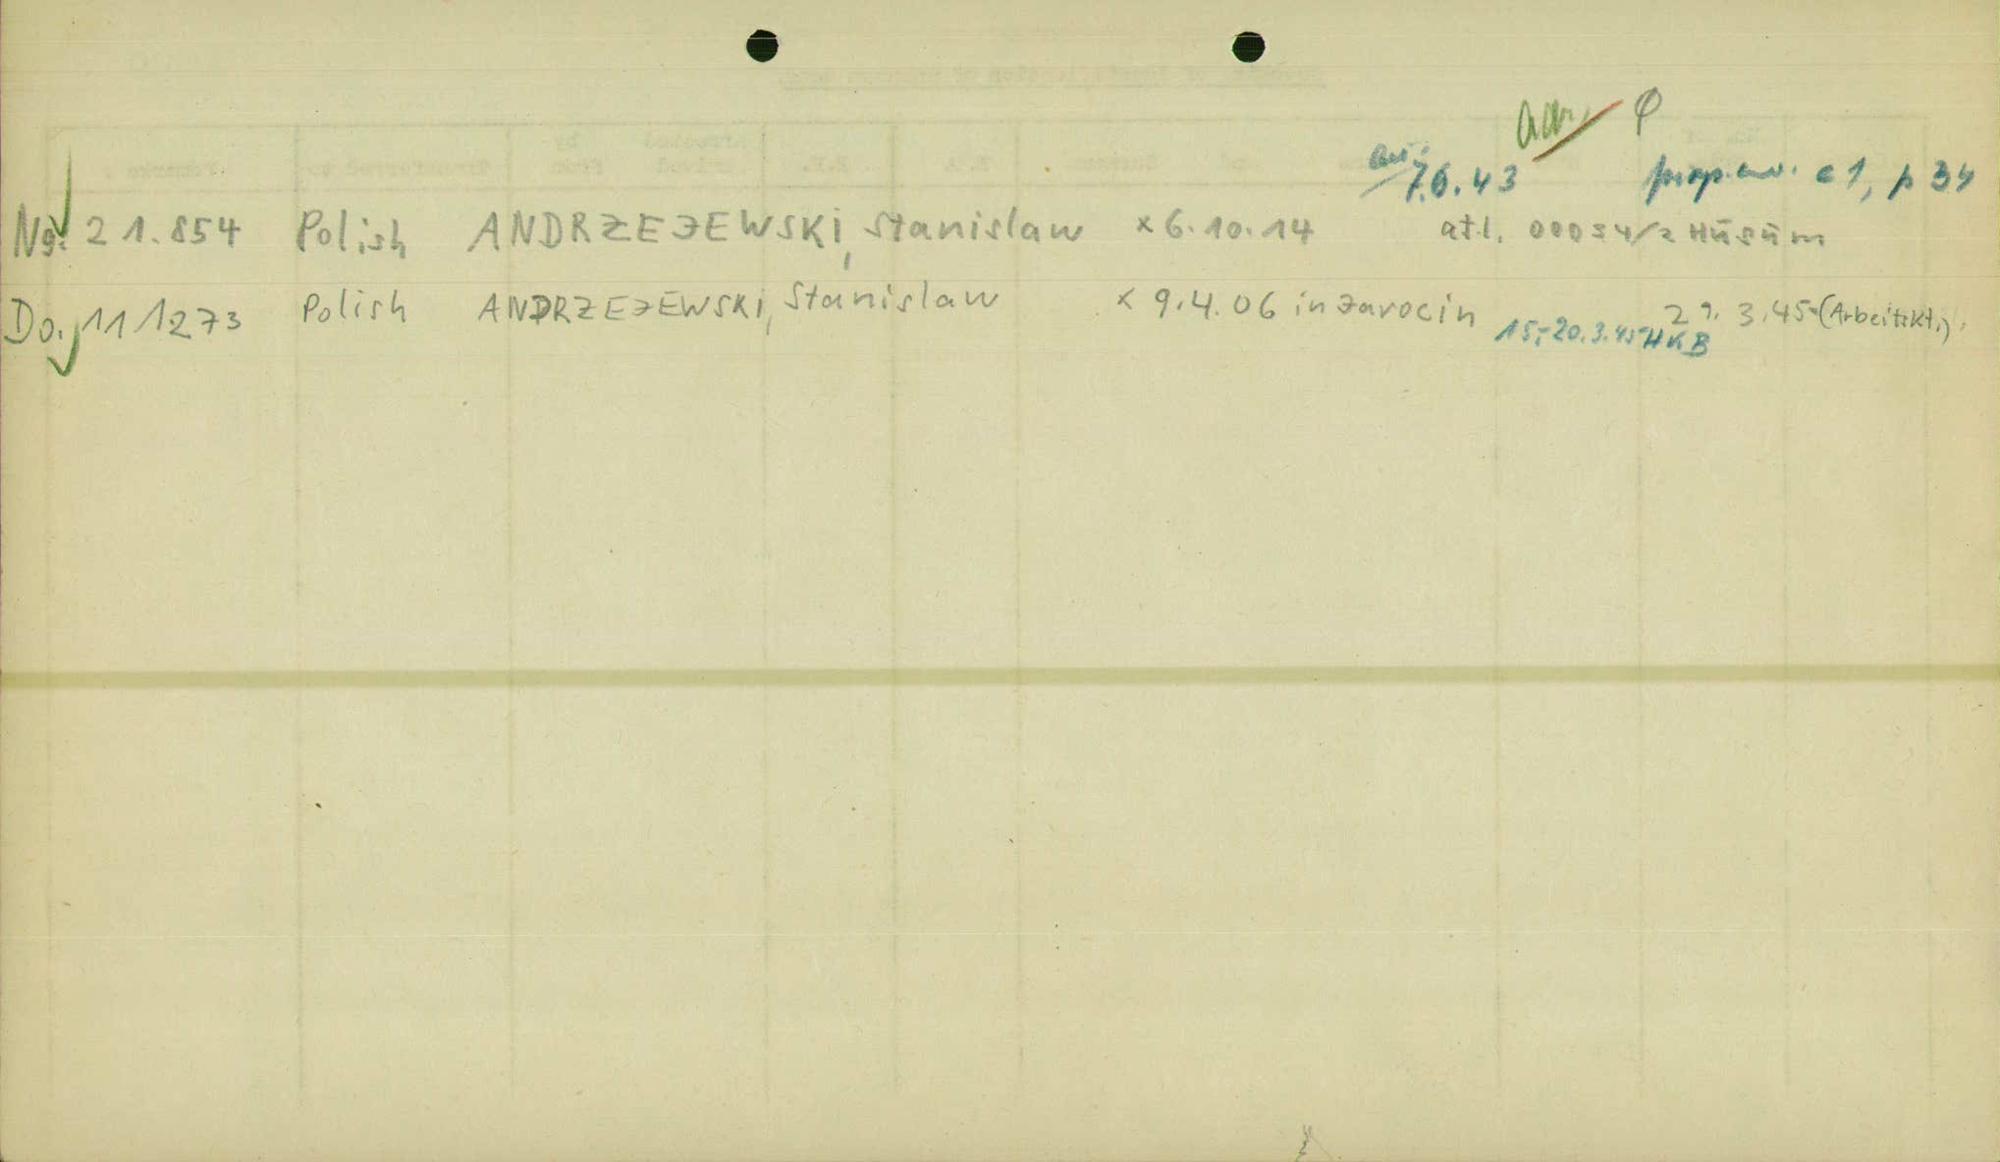 7.6.43 prop. c 1, p 34
Ng. 21.854 Polish ANDRZEJEWSKI, Stanislaw x 6.10.14 atl. 00054/2 Husum
Do. 111273 Polish ANDRZEJEWSKI, Stanislaw x 9.4.06 in Jarocin 29.3.45 (Arbeitskt.)
15.-20.3.45 HKB